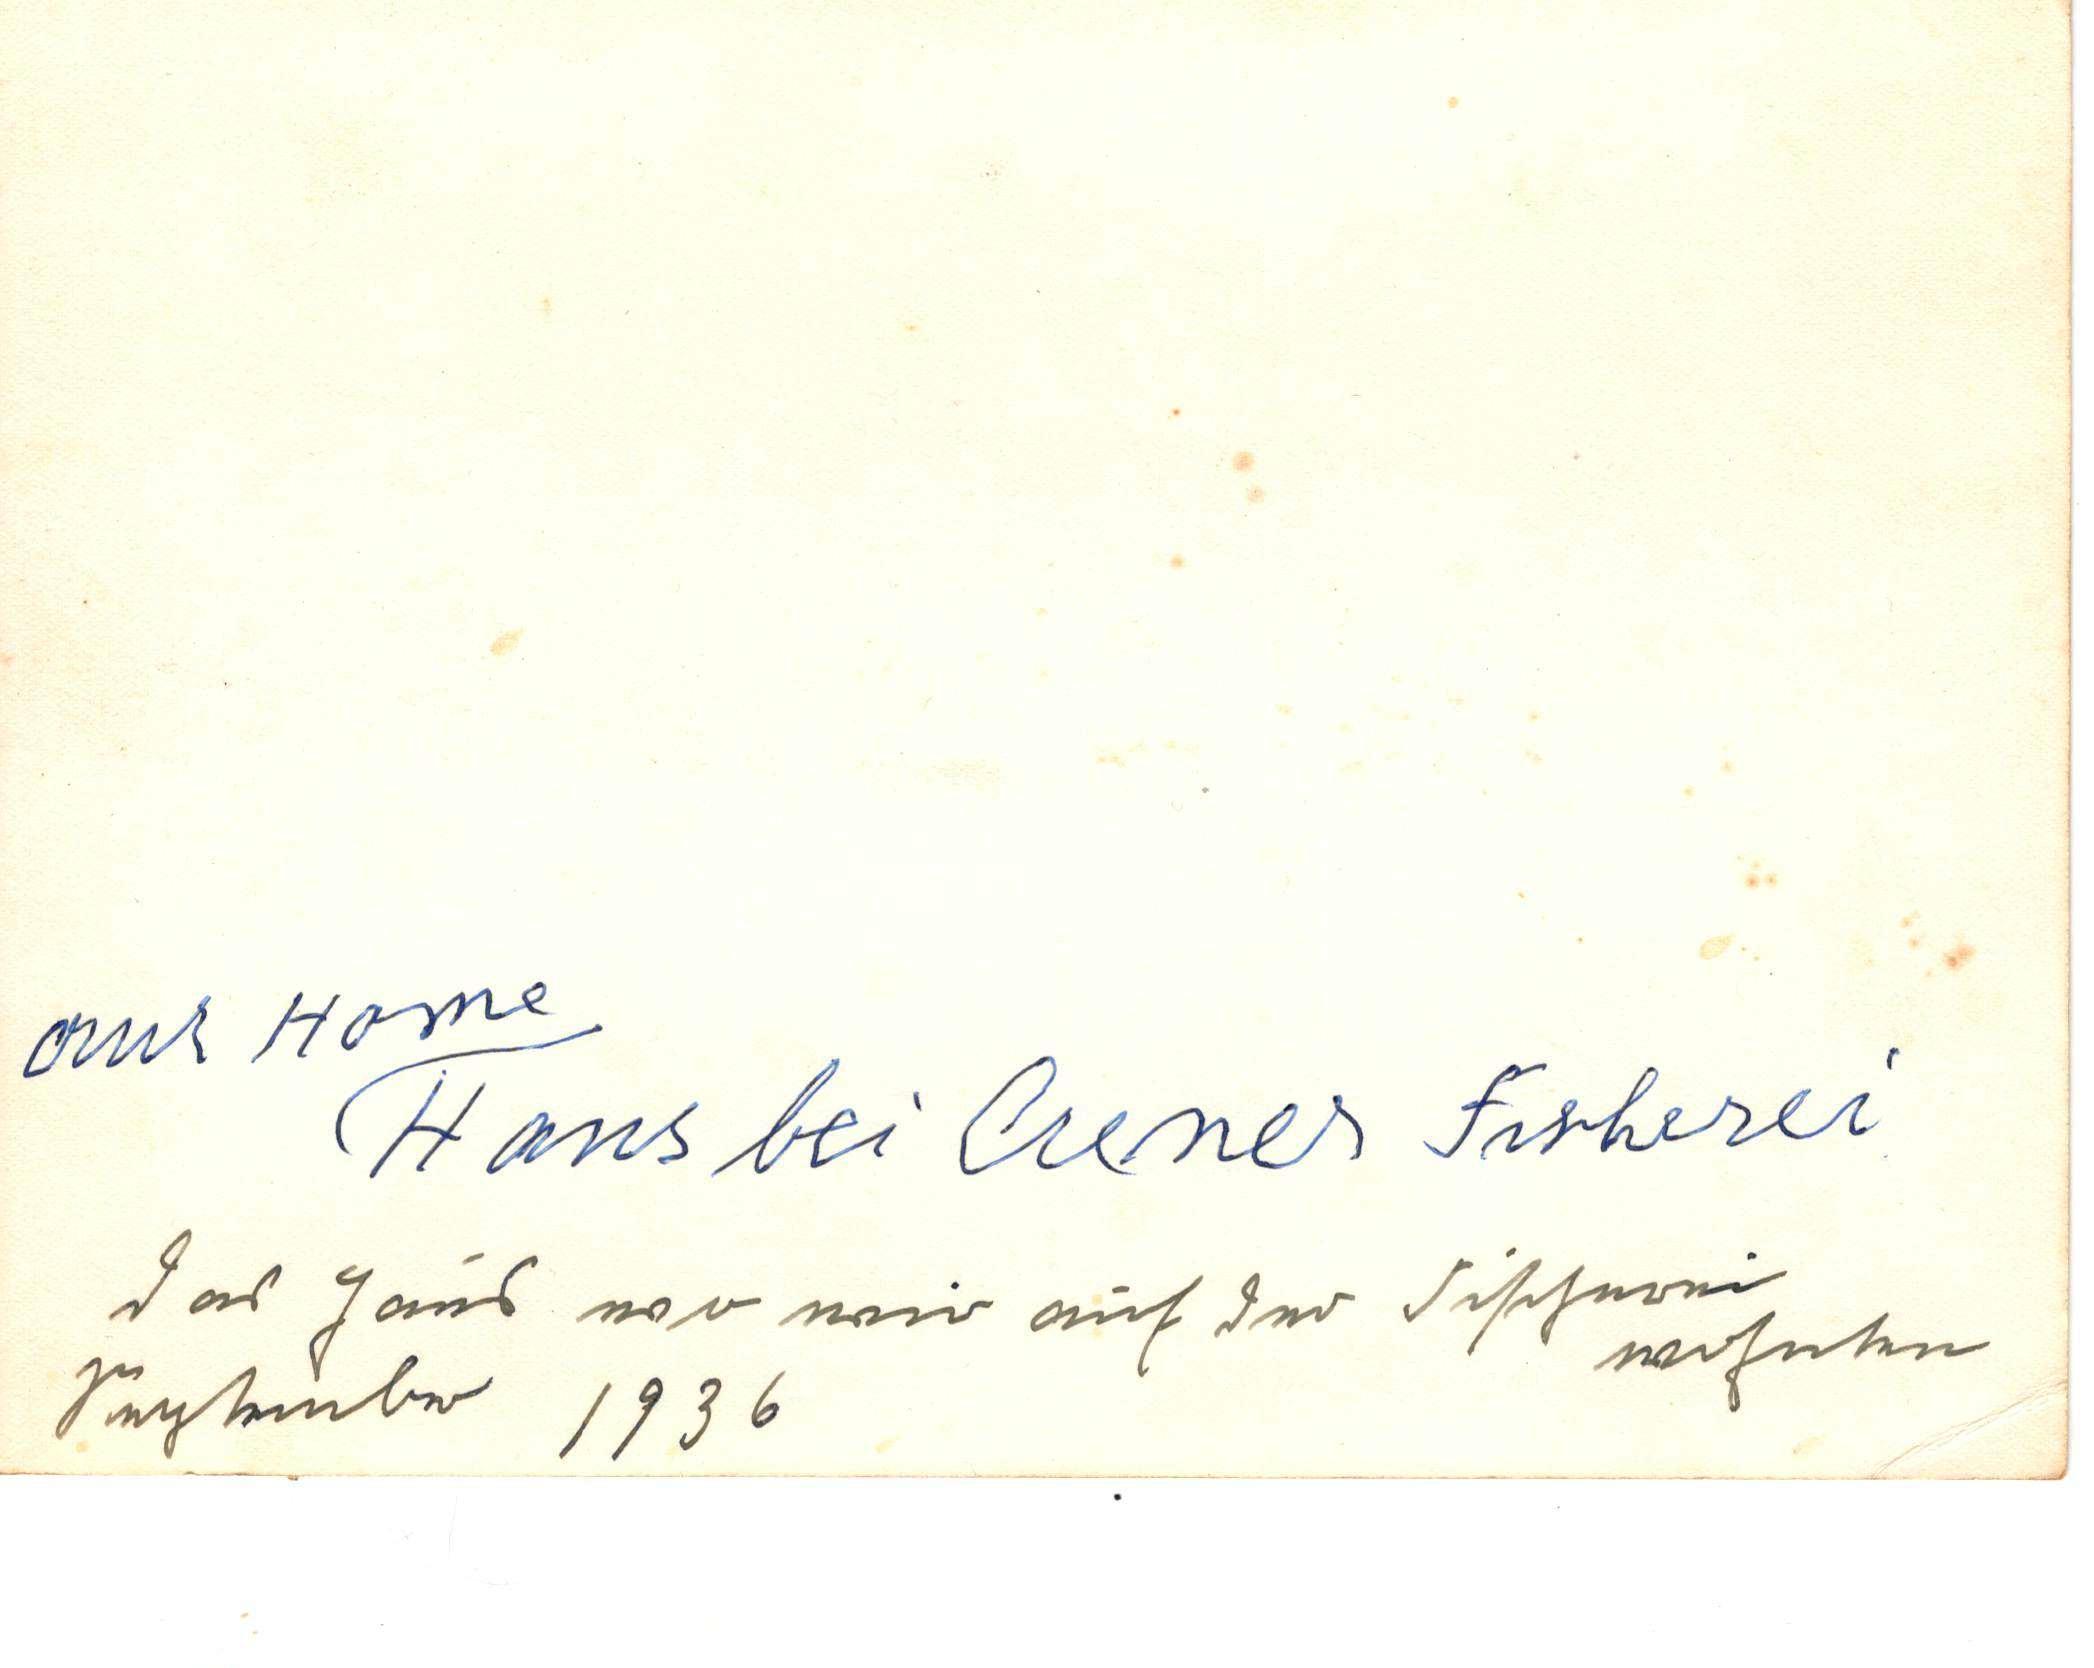 our Home
Haus bei Crener Fischerei
Das Haus wo wir auf der Fischerei
wohnten
September 1936